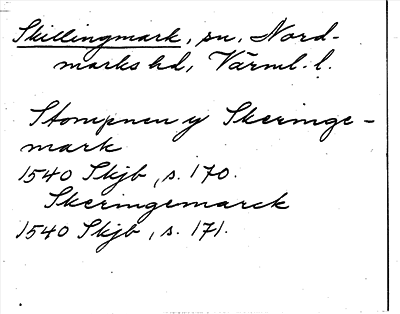 Skillingmark, sn, Nord-
marks hd, Värml. l.
Stompnen y Skeringe-
mark
1540 Skjb, s. 170.
Skeringemarck
1540 Skjb, s. 171.